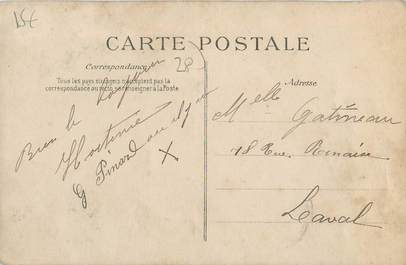 15€
CARTE POSTALE
28
Correspondance
Tous les pays étrangers n'acceptent pas la
correspondance au recto, se renseigner à la Poste
Adresse
Bien le bonjour
Hortense
G Pinard
X
Melle Gatineau
18 Rue
Laval